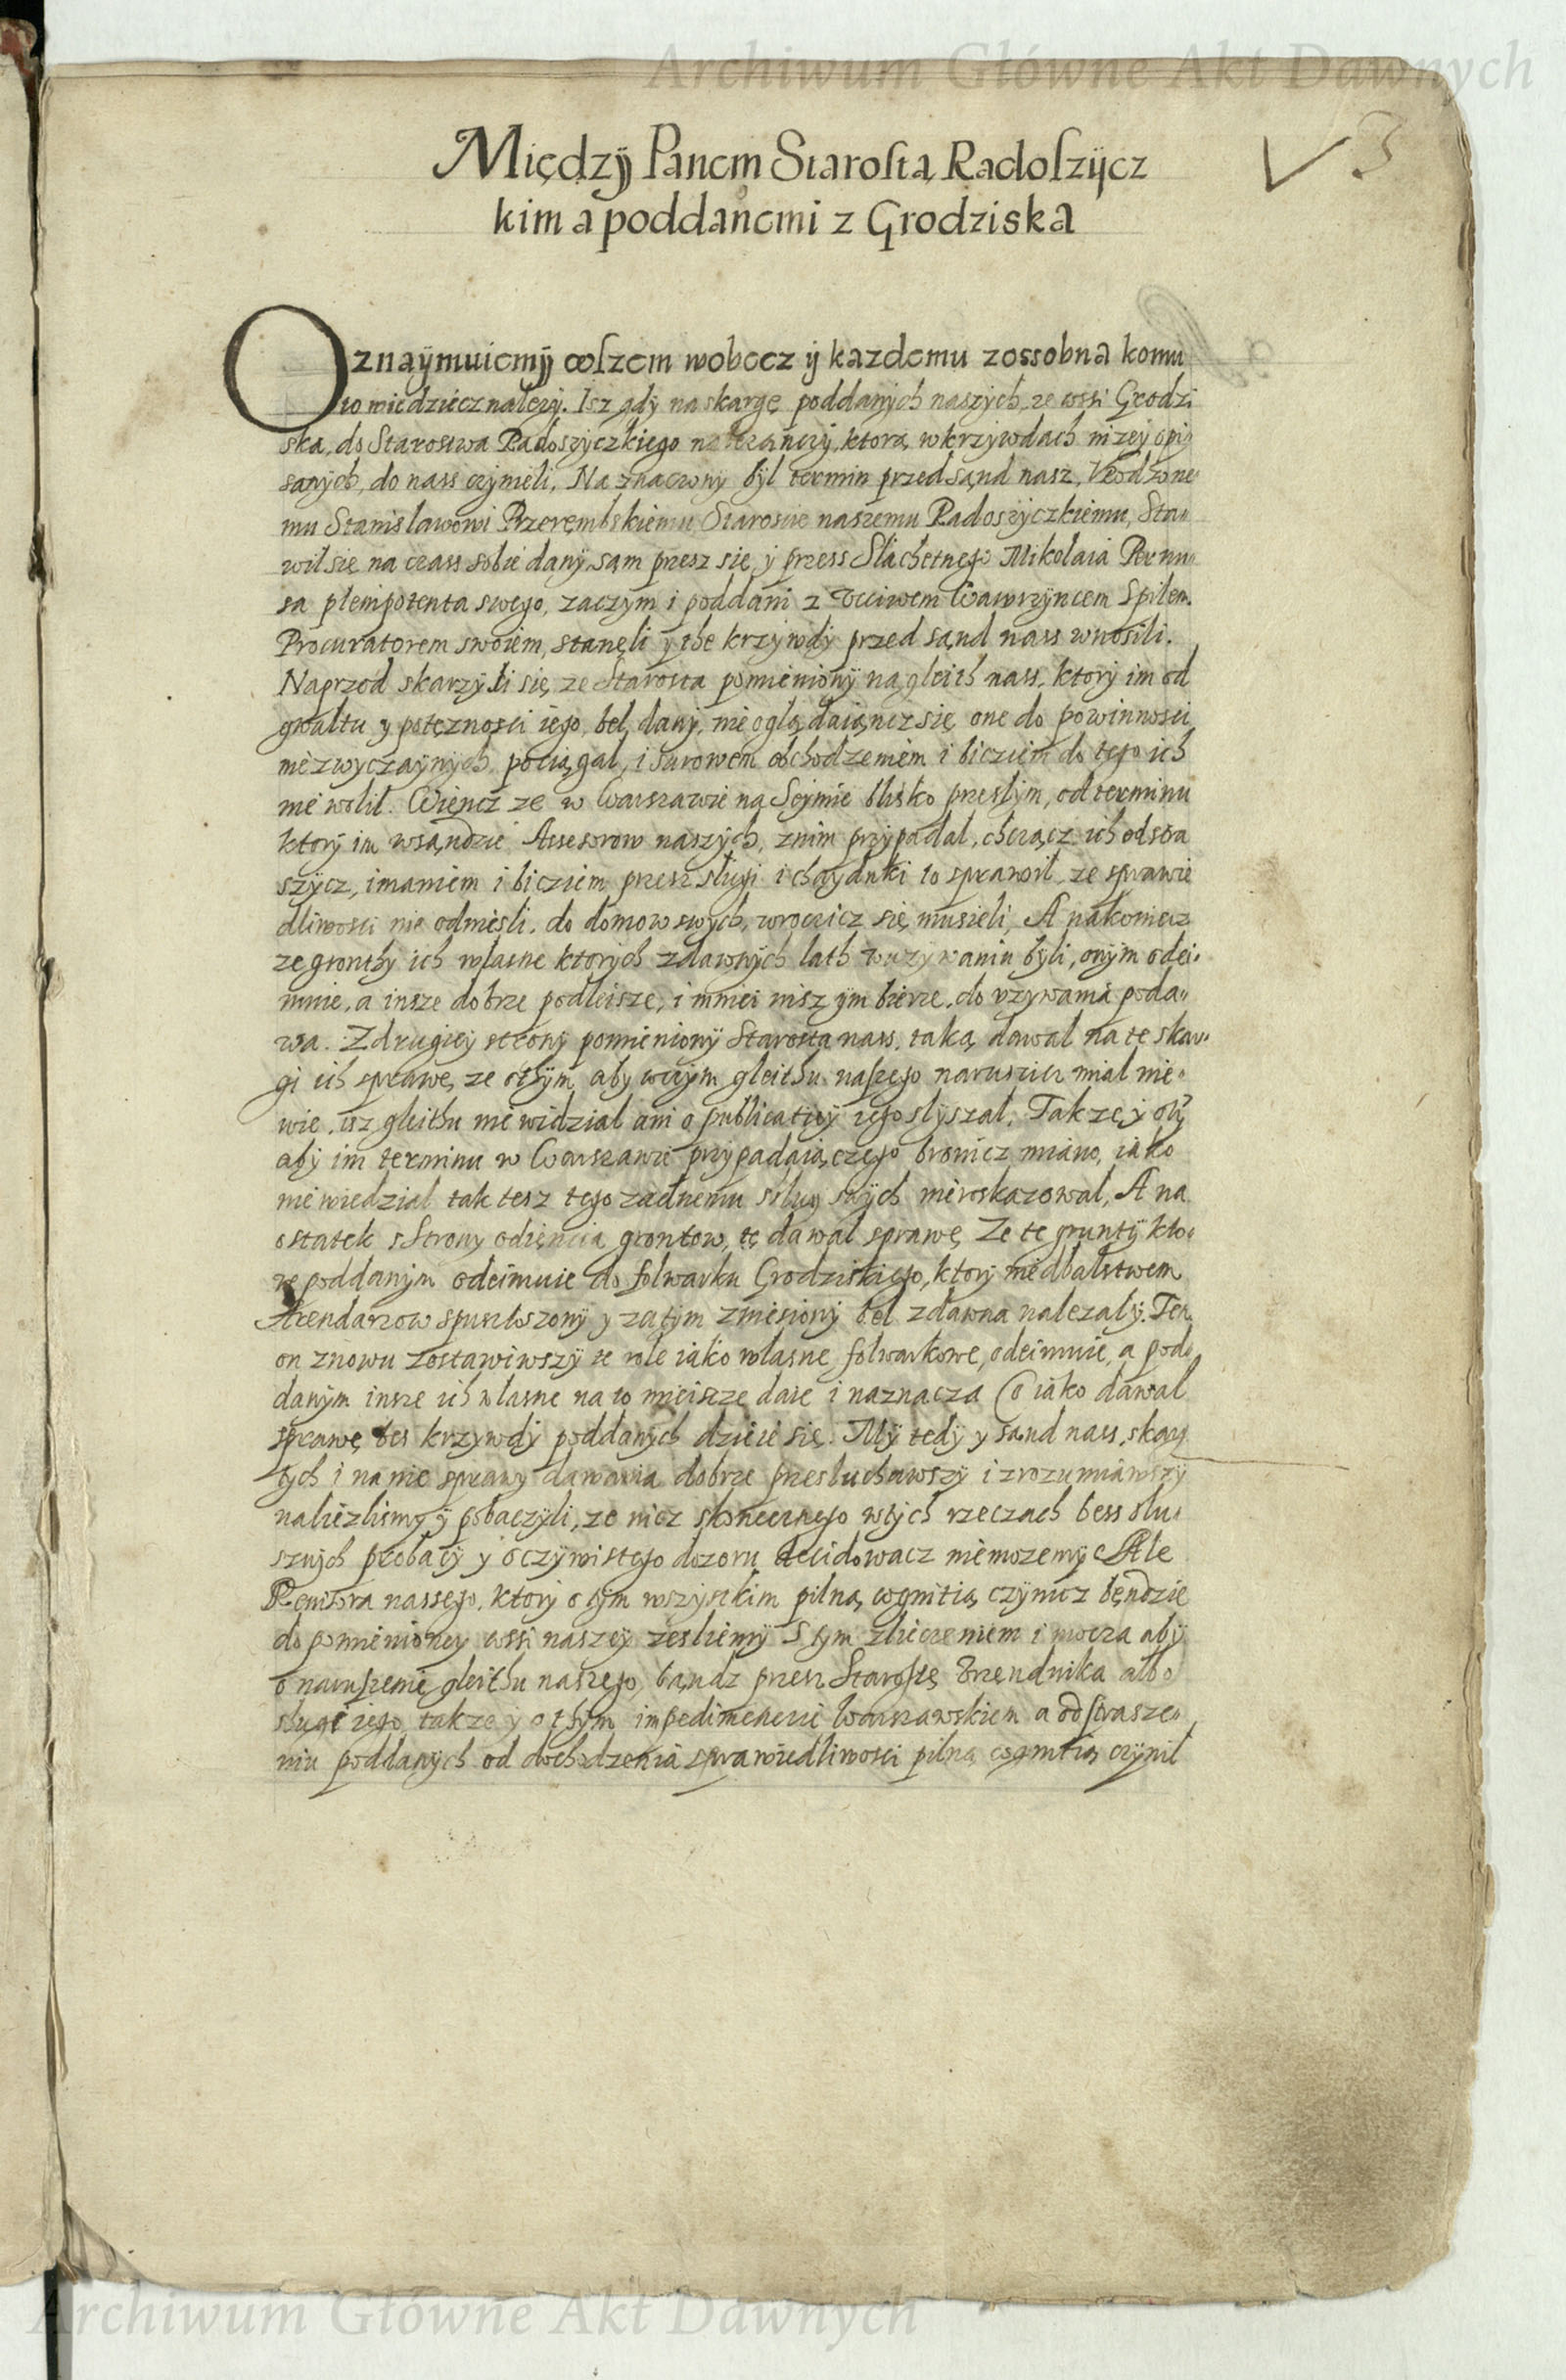 Archiwum Główne Akt Dawnych
3
Międzÿ Panem Starostą Radoszÿcz
kim a poddanemi z Grodziska
Oznaÿmuiemÿ wszem wobecz ÿ kazdemu zossobna komu
to wiedziecz nalezÿ. Isz gdÿ na skargę poddanÿch naszÿch, ze wssi Grodzi
ska, do Starostwa Radoszÿczkiego którą w krzÿwdach nizeÿ opi„
sanÿch, do nass czÿnieli, Naznaczonÿ bÿl termin przed sąnd nasz, Vrodzone„
mu Stanislawowi Przerembskiemu Staroscie naszemu Radoszÿczkiemu, Sta„
wil się na czass sobie danÿ, sam przesz się, ÿ przess Slachetnego Mikolaia
sa plenipotenta swego, zaczÿm i poddani z Vcciwem Wawrzÿncem Spilem
Procuratorem swoiem, stanęli ÿ the krzÿwdÿ przed sąnd nass wnosili.
Naprzod skarzÿli się, ze Starosta pomienionÿ na gleith nass, ktorÿ im od
gwaltu y potęznosci iego, bel danÿ, nie oglądaiąncz się one do powinnosci
niezwÿczaÿnÿch pociągal, i surowem obchodzeniem i biciem do tego ich
niewolil. Więncz ze w Warszawie na Sejmie blisko preslÿm, od terminu
ktorÿ im w sąndzie Assesorow naszÿch, znim przÿpadal, chcącz ich odstra
szÿcz, imaniem i biciem przesz slugi i chaÿduki to sprawil, ze sprawie
dliwosci nie odniesli, do domow swÿch, wrocicz się musieli, A nakoniecz
ze gronthÿ ich wlasne ktorÿch zdawnÿch lath w uzÿwaniu bÿli, onÿm odei„
mnie, a insze dobrze podleisze, i mniei nisz ÿm bierze, do vzÿwania poda„
wa. Z drugieÿ stronÿ pomienionÿ Starosta nass, taką dawal na te skar„
gi ich sprawę, ze o thÿm, abÿ wczÿm gleithu naszego naruszicz mial nie„
wie, isz gleithu nie widzial ani o publicatiÿ iego slÿszal, Takze ÿ o tÿm
abÿ im terminu w Warszawie przÿpadaiączego bronicz miano, iako
nie wiedzial tak tesz tego zadnemu s slug swÿch nieroskazowal, A na
ostatek s Stronÿ odięncia grontow, tę dawal sprawę, Ze te gruntÿ kto„
re poddanÿm odeimuie do folwarku Grodziskiego, ktorÿ niedbalstwem
Arendarzow spustoszonÿ y zatÿm zniesionÿ bel zdawna nalezalÿ. Ten
on znowu zostawiwszÿ te role iako wlasne folwarkowe, odeimuie, a pod„
danÿm insze ich wlasne na to mieiscze daie i naznacza Co iako dawal
sprawę bes krzÿwdÿ poddanÿch dzieie się. Mÿ tedÿ y sąnd nass, skarg
tÿch i na nie sprawÿ dawania dobrze przesluchawszÿ i zrozumiawszÿ
naliezlismÿ ÿ obaczÿli, ze nicz skonecznego w tÿch rzeczach bess slu„
sznÿch probaciÿ y oczÿwistego dozoru decidowacz niemozemÿ Ale
Rewisora nassego, ktorÿ o tÿm wszÿstkim pilną cognitią czÿnicz bęndzie
do pomienioneÿ wssi naszeÿ zesliemÿ s tÿm zlieceniem i moczą abÿ
o naruszenie gleithu naszego, bąndz przesz Starostę Vrzęndnika albo
slugi iego, takze y o thÿm impedimencie Warszawskiem a odstrasze„
niu poddanÿch od dochodzenia sprawiedliwosci pilną cognitią czÿnil
Archiwum Główne Akt Dawnych